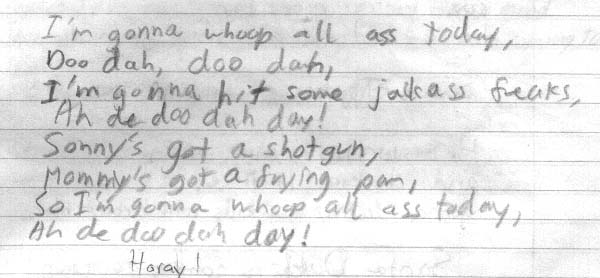 I'm gonna whoop all ass today,
Doo dah, doo dah,
I'm gonna hit some jackass freaks,
Ah de doo dah day!
Sonny's got a shotgun,
Mommy's got a frying pan,
So I'm gonna whoop all ass today,
Ah de doo dah day!
Horay!